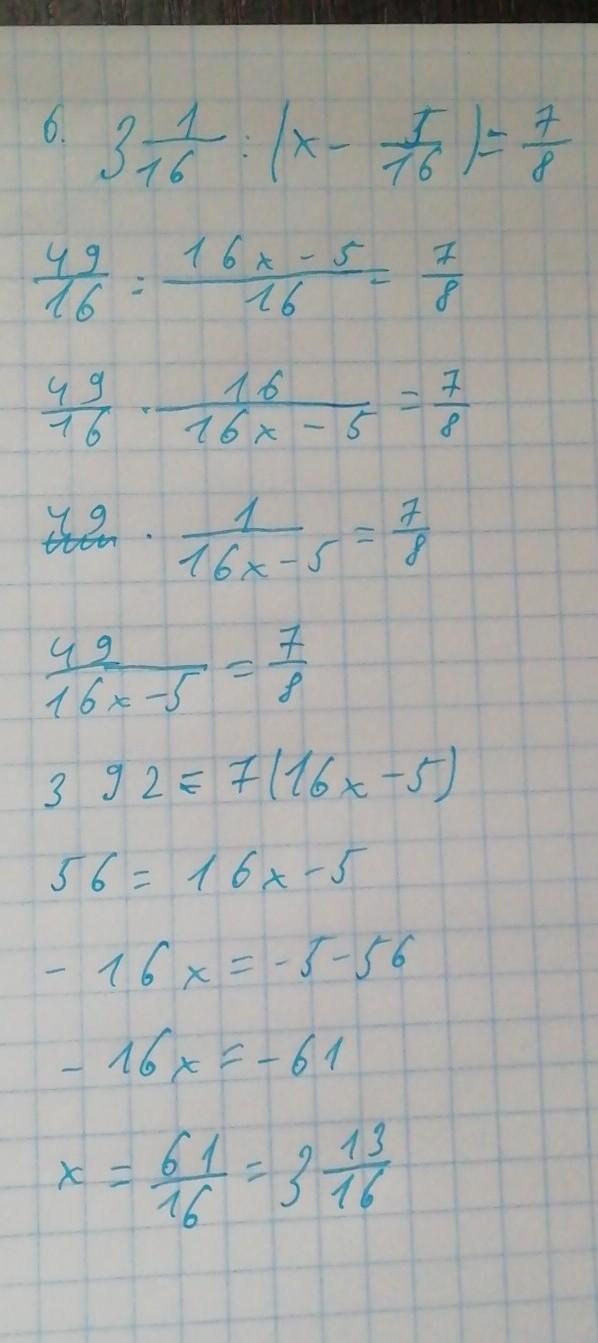 6. 3 1/16 : (x - 5/16) = 7/8
49/16 : (16x - 5)/16 = 7/8
49/16 · 16/(16x - 5) = 7/8
49 · 1/(16x - 5) = 7/8
49/(16x - 5) = 7/8
392 = 7(16x - 5)
56 = 16x - 5
- 16x = -5 - 56
- 16x = -61
x = 61/16 = 3 13/16